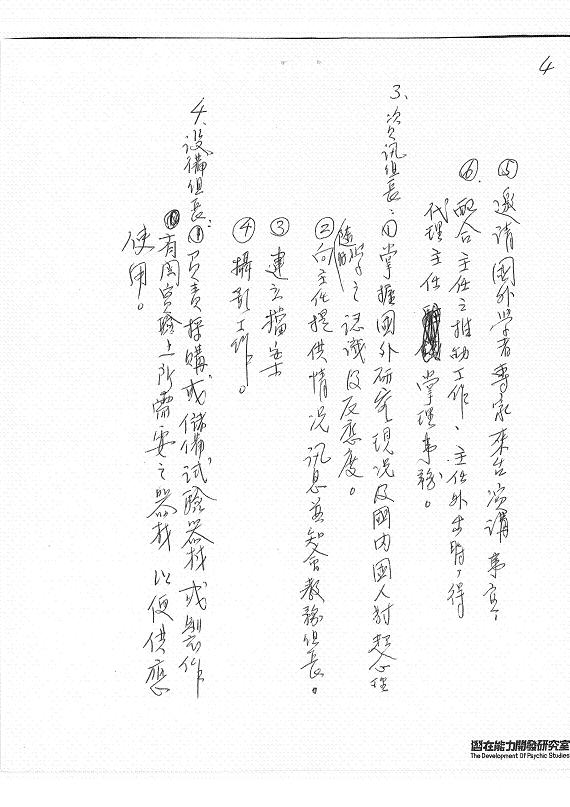 4
⑤ 邀請國外學者專家來台演講事宜,
⑥. 配合主任之推動工作、主任外出時,得
代理主任掌理事務。
3、資訊組長:① 掌握國外研究現況及國內國人對超心理
學之認識及反應度。
② 向主任提供情況訊息並知會教務組長。
③ 建立檔案
④ 攝影工作。
4、設備組長:① 負責採購或儲備試驗器材或製作
有關實驗上所需要之器材 以便供應
使用。
潛在能力開發研究室
The Development Of Psychic Studies